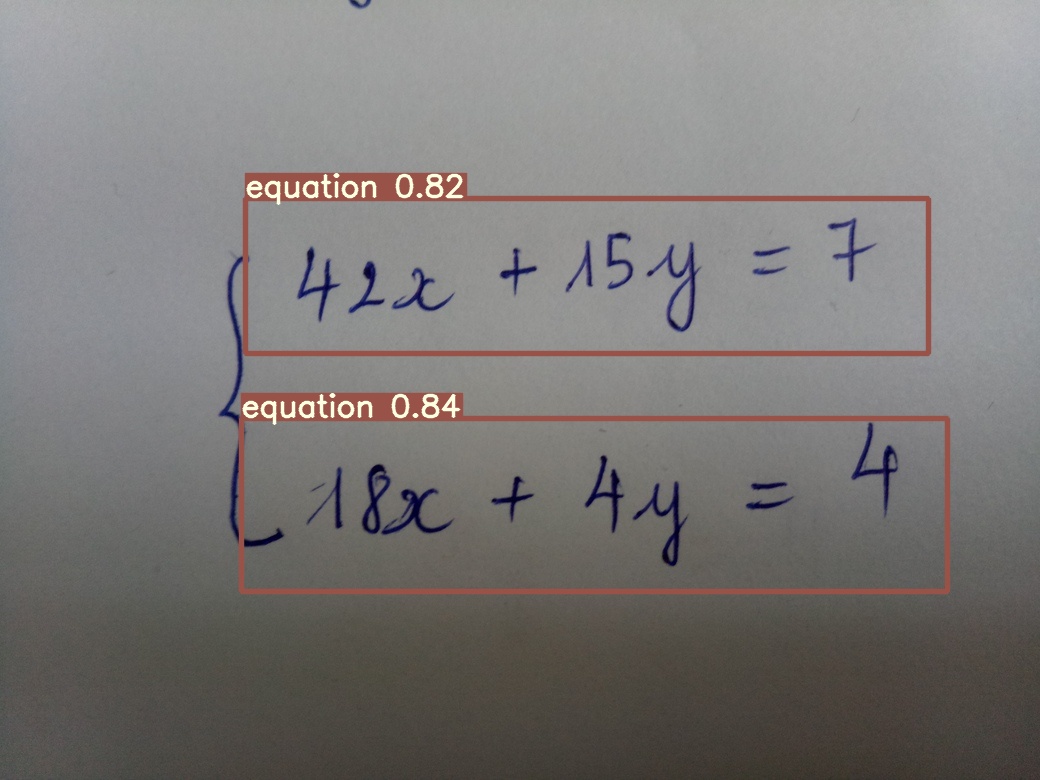 equation 0.82
42x + 15y = 7
equation 0.84
18x + 4y = 4